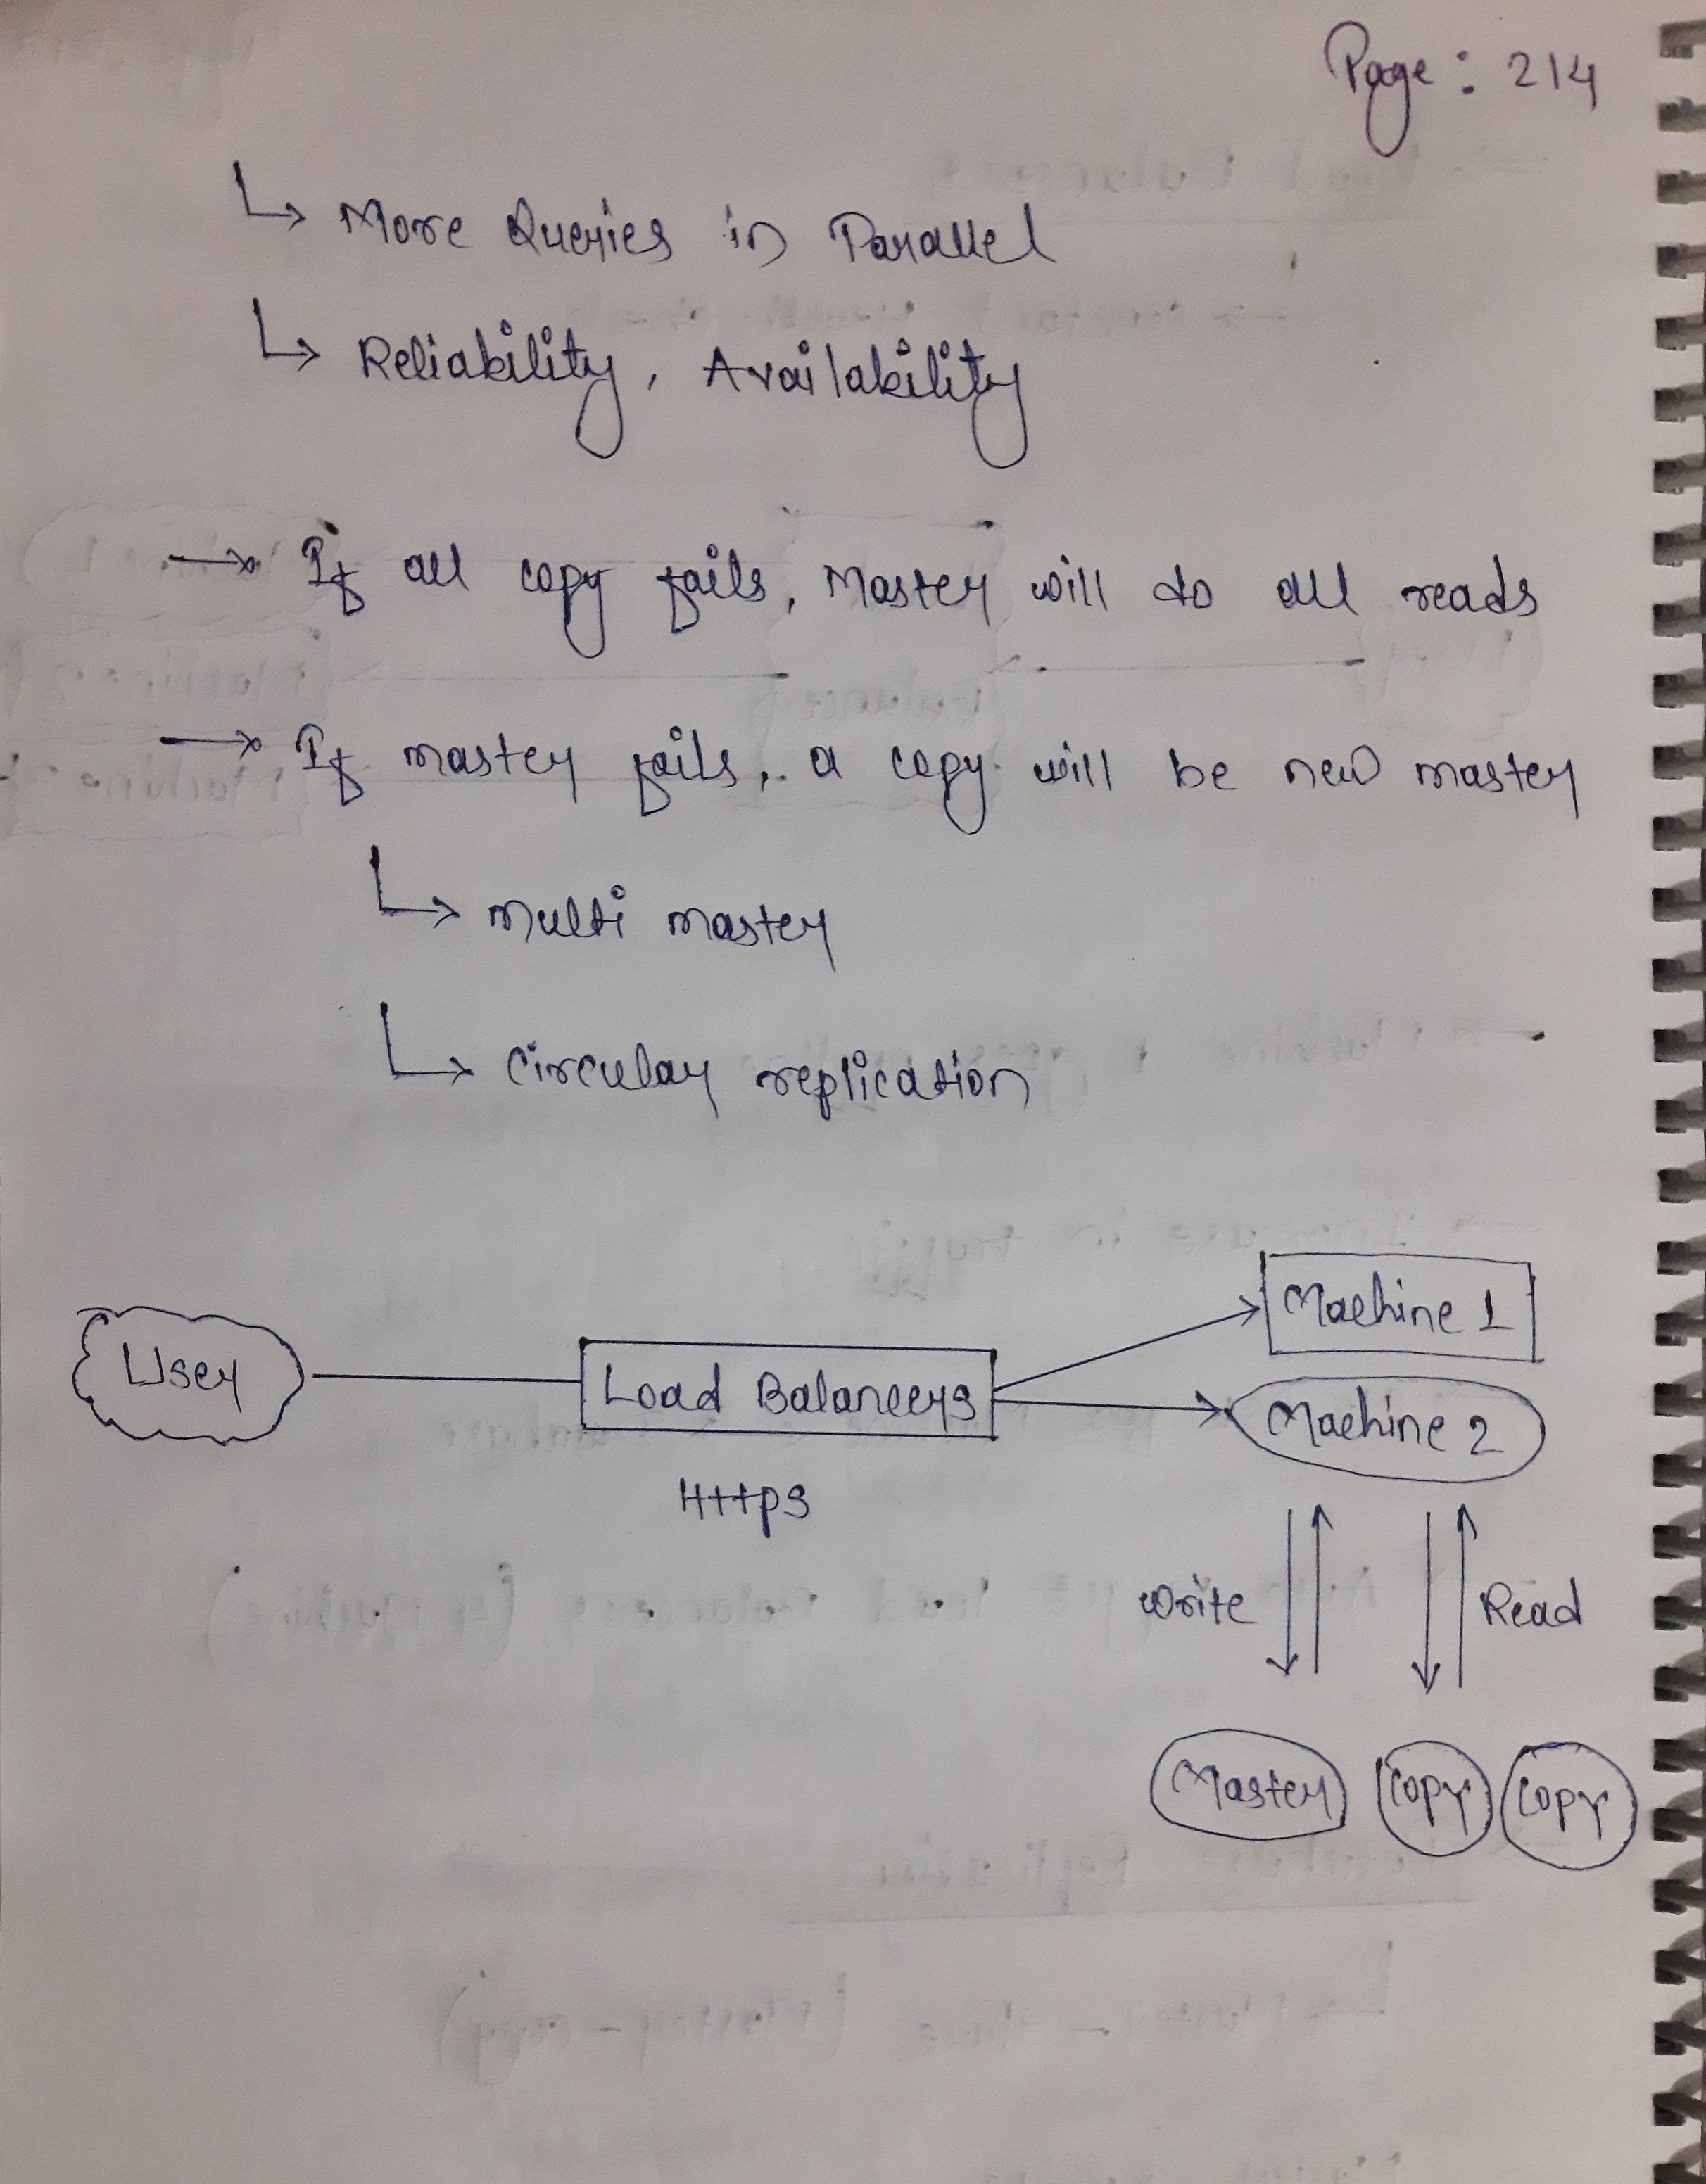 Page : 214
↳ More Queries in Parallel
↳ Reliability, Availability
→ If all copy fails, Master will do all reads
→ If master fails, a copy will be new master
↳ Multi master
↳ Circular replication
Machine 1
User
Load Balancers
Machine 2
Https
Write
Read
Master
Copy
Copy